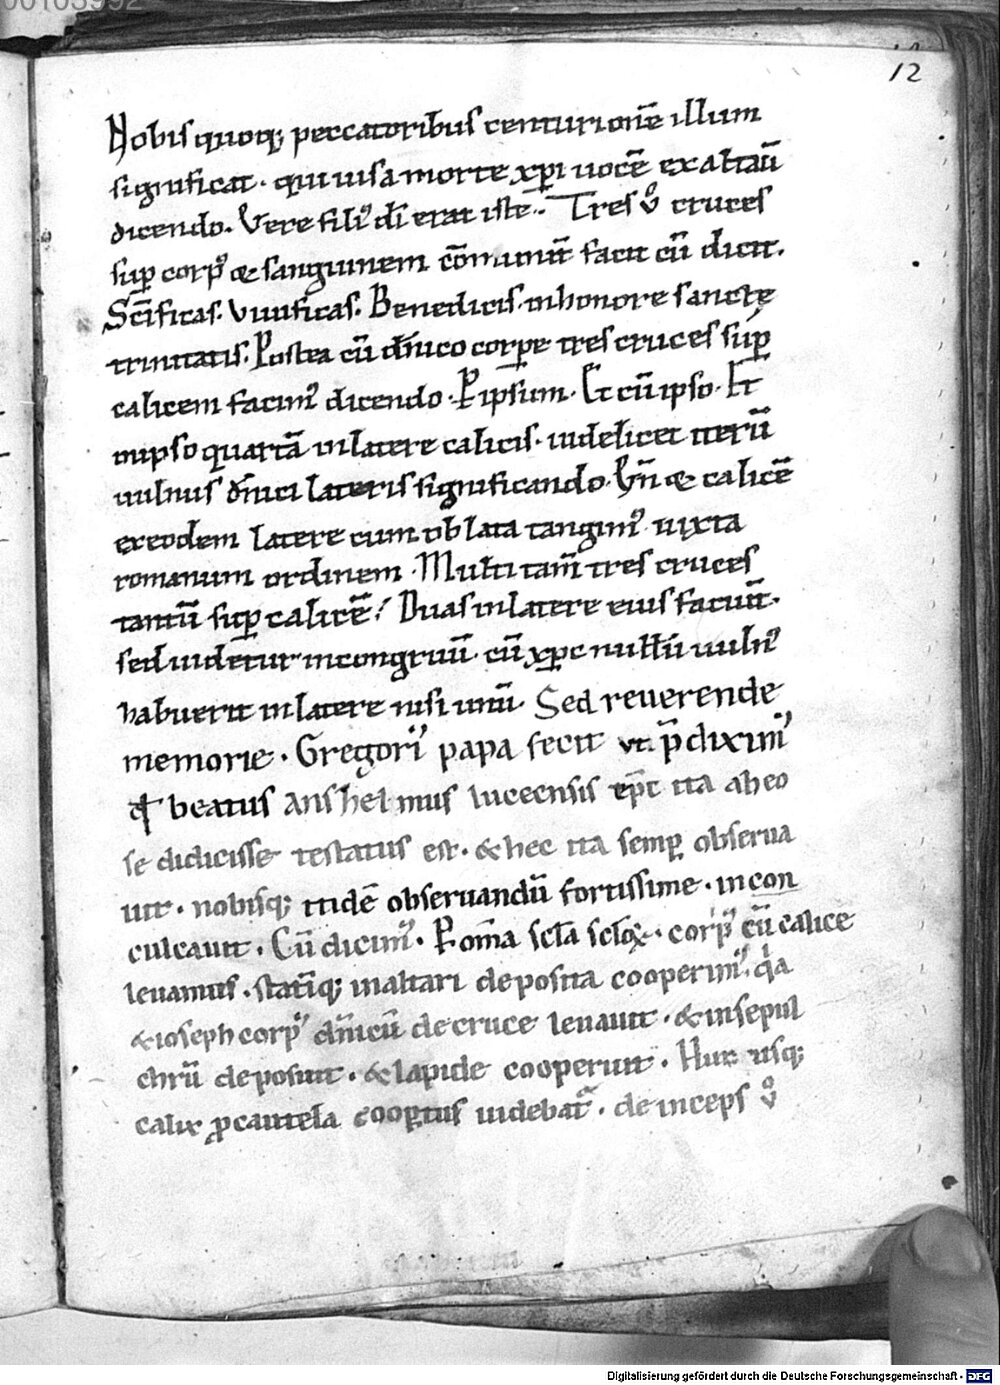 00103992
12
Nobis quoq; peccatoribus centurionē illum
significat. qui uisa morte xp̄i uocē exaltaū
dicendo. Vere fili᷒ dī erat iste. Tres ů cruces
sup̄ corp᷒ & sanguinem cōmunit̄ facit cū dicit.
Sc̄ificas. Viuificas. Benedicis. in honore sanctę
trinitatis. Postea cū dn̄ico corꝑe tres cruces sup̄
calicem facim᷒ dicendo. P ipsum. Et cū ipso. Et
in ipso quartā in latere calicis. uidelicet iterū
uulnus dn̄ici lateris significando. Vn̄ & calicē
ex eodem latere cum oblata tangim᷒ iuxta
romanum ordinem. Multi tam̄ tres cruces
tantū sup̄ calicē. Duas in latere eius faciūt.
sed uidetur incongruū. cū xp̄c nullū uuln᷒
habuerit in latere nisi unū. Sed reuerende
memorie. Gregori᷒ papa fecit ut p̄dixim᷒
qđ beatus Anshelmus lucensis ep̄c ita ab eo
se didicisse testatus est. & hec ita semꝑ obserua
uit. nobisq; itidē obseruandū fortissime. incon
culcauit. Cū dicim᷒. P om̄a sc̄la sc̄loꝝ. corp᷒ cū calice
leuamus. statīq; in altari deposita cooperim᷒. qͥa
& ioseph corp᷒ dn̄icū de cruce leauit. & in sepul
chrū deposuit. & lapide cooperuit. Huc usq;
calix ꝓ cautela cooꝑtus uidebat᷑. deinceps ů
Digitalisierung gefördert durch die Deutsche Forschungsgemeinschaft - DFG